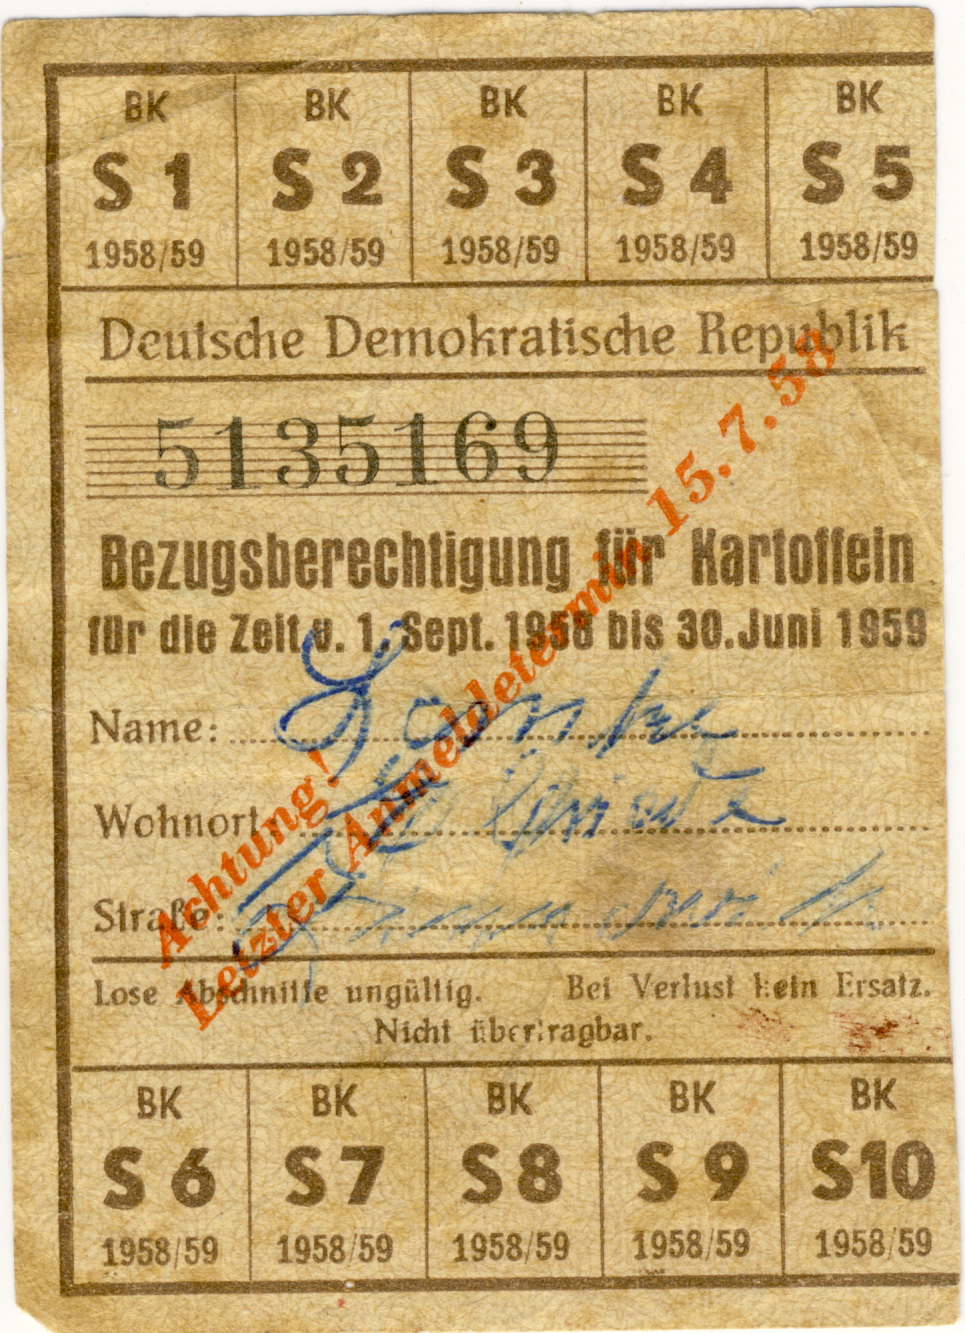 BK BK BK BK BK
S 1 S 2 S 3 S 4 S 5
1958/59 1958/59 1958/59 1958/59 1958/59
Deutsche Demokratische Republik
5135169
Bezugsberechtigung für Kartoffeln
für die Zeit v. 1. Sept. 1958 bis 30. Juni 1959
Name:
Wohnort:
Straße:
Achtung!
Letzter Anmeldetermin 15.7.58
Lose Abschnitte ungültig. Bei Verlust kein Ersatz.
Nicht übertragbar.
BK BK BK BK BK
S 6 S 7 S 8 S 9 S 10
1958/59 1958/59 1958/59 1958/59 1958/59